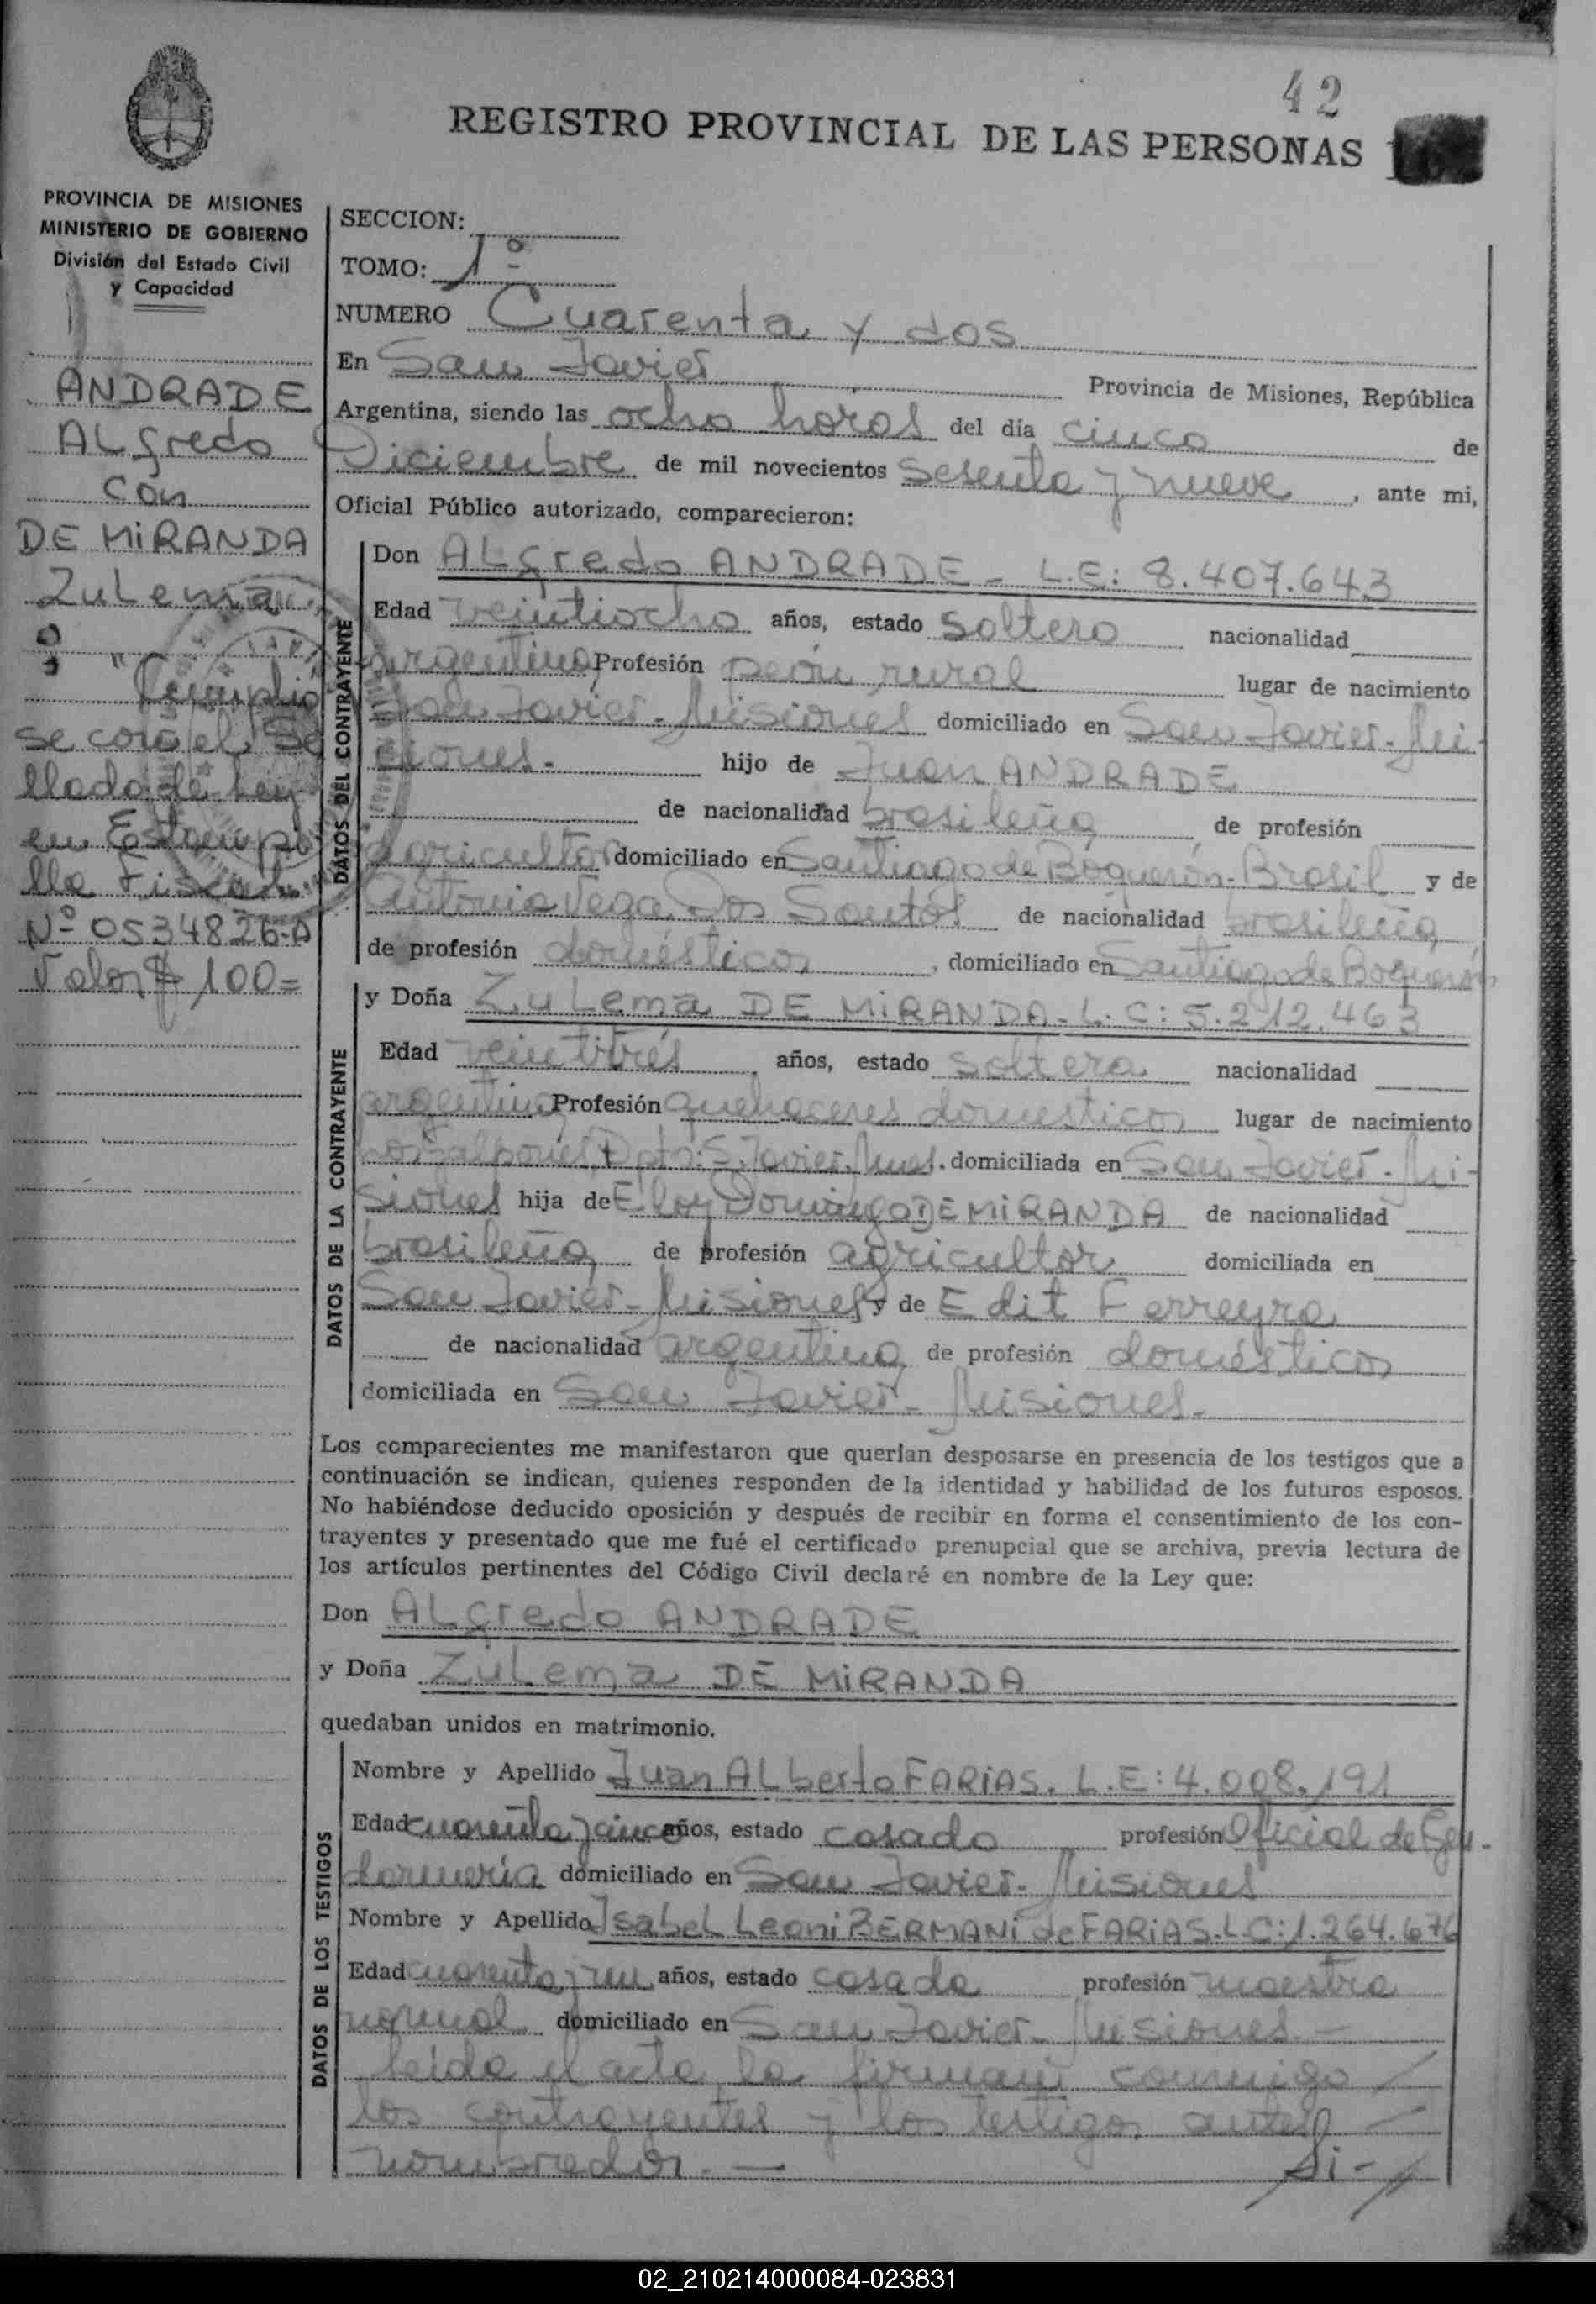 42
REGISTRO PROVINCIAL DE LAS PERSONAS
PROVINCIA DE MISIONES
MINISTERIO DE GOBIERNO
División del Estado Civil
y Capacidad
ANDRADE
ALfredo
con
DE MiRANDA
ZuLema
se coro el Se
llado de Ley
en Estampi
lla Fiscal
Nº 0534826-A
Valor $ 100=
SECCION:
TOMO: 1º
NUMERO Cuarenta y dos
En San Javier Provincia de Misiones, República
Argentina, siendo las ocho horas del día cinco de
Diciembre de mil novecientos sesenta y nueve, ante mi,
Oficial Público autorizado, comparecieron:
DATOS DEL CONTRAYENTE
Don ALfredo ANDRADE - L.E: 8.407.643
Edad veintiocho años, estado soltero nacionalidad
argentina Profesión peón rural lugar de nacimiento
San Javier - Misiones domiciliado en San Javier - Mi-
siones.- hijo de Juan ANDRADE
de nacionalidad brasileña de profesión
agricultor domiciliado en Santiago de Boquerón - Brasil y de
Antonia Vega Dos Santos de nacionalidad brasileña
de profesión domésticos, domiciliado en Santiago de Boquerón
DATOS DE LA CONTRAYENTE
y Doña ZuLema DE MiRANDA - L.C: 5.212.463
Edad veintitrés años, estado soltera nacionalidad
argentina Profesión quehaceres domesticos lugar de nacimiento
Dpto: S. Javier, Mnes. domiciliada en San Javier - Mi-
siones hija de Eloy Domingo DE MiRANDA de nacionalidad
brasileña de profesión agricultor domiciliada en
San Javier - Misiones y de Edit Ferreyra
de nacionalidad argentina de profesión domésticos
domiciliada en San Javier - Misiones.
Los comparecientes me manifestaron que querían desposarse en presencia de los testigos que a
continuación se indican, quienes responden de la identidad y habilidad de los futuros esposos.
No habiéndose deducido oposición y después de recibir en forma el consentimiento de los con-
trayentes y presentado que me fué el certificado prenupcial que se archiva, previa lectura de
los artículos pertinentes del Código Civil declaré en nombre de la Ley que:
Don ALfredo ANDRADE
y Doña ZuLema DE MiRANDA
quedaban unidos en matrimonio.
DATOS DE LOS TESTIGOS
Nombre y Apellido Juan ALberto FARiAS. L.E: 4.008.191
Edad cuarenta y cinco años, estado casado profesión Oficial de Gen-
darmería domiciliado en San Javier - Misiones
Nombre y Apellido Isabel Leoni BERMANi de FARiAS. L.C: 1.264.676
Edad cuarenta y un años, estado casada profesión maestra
normal domiciliado en San Javier - Misiones.-
Leida el acta la firman conmigo
los contrayentes y los testigos antes
nombrados.-
02_210214000084-023831